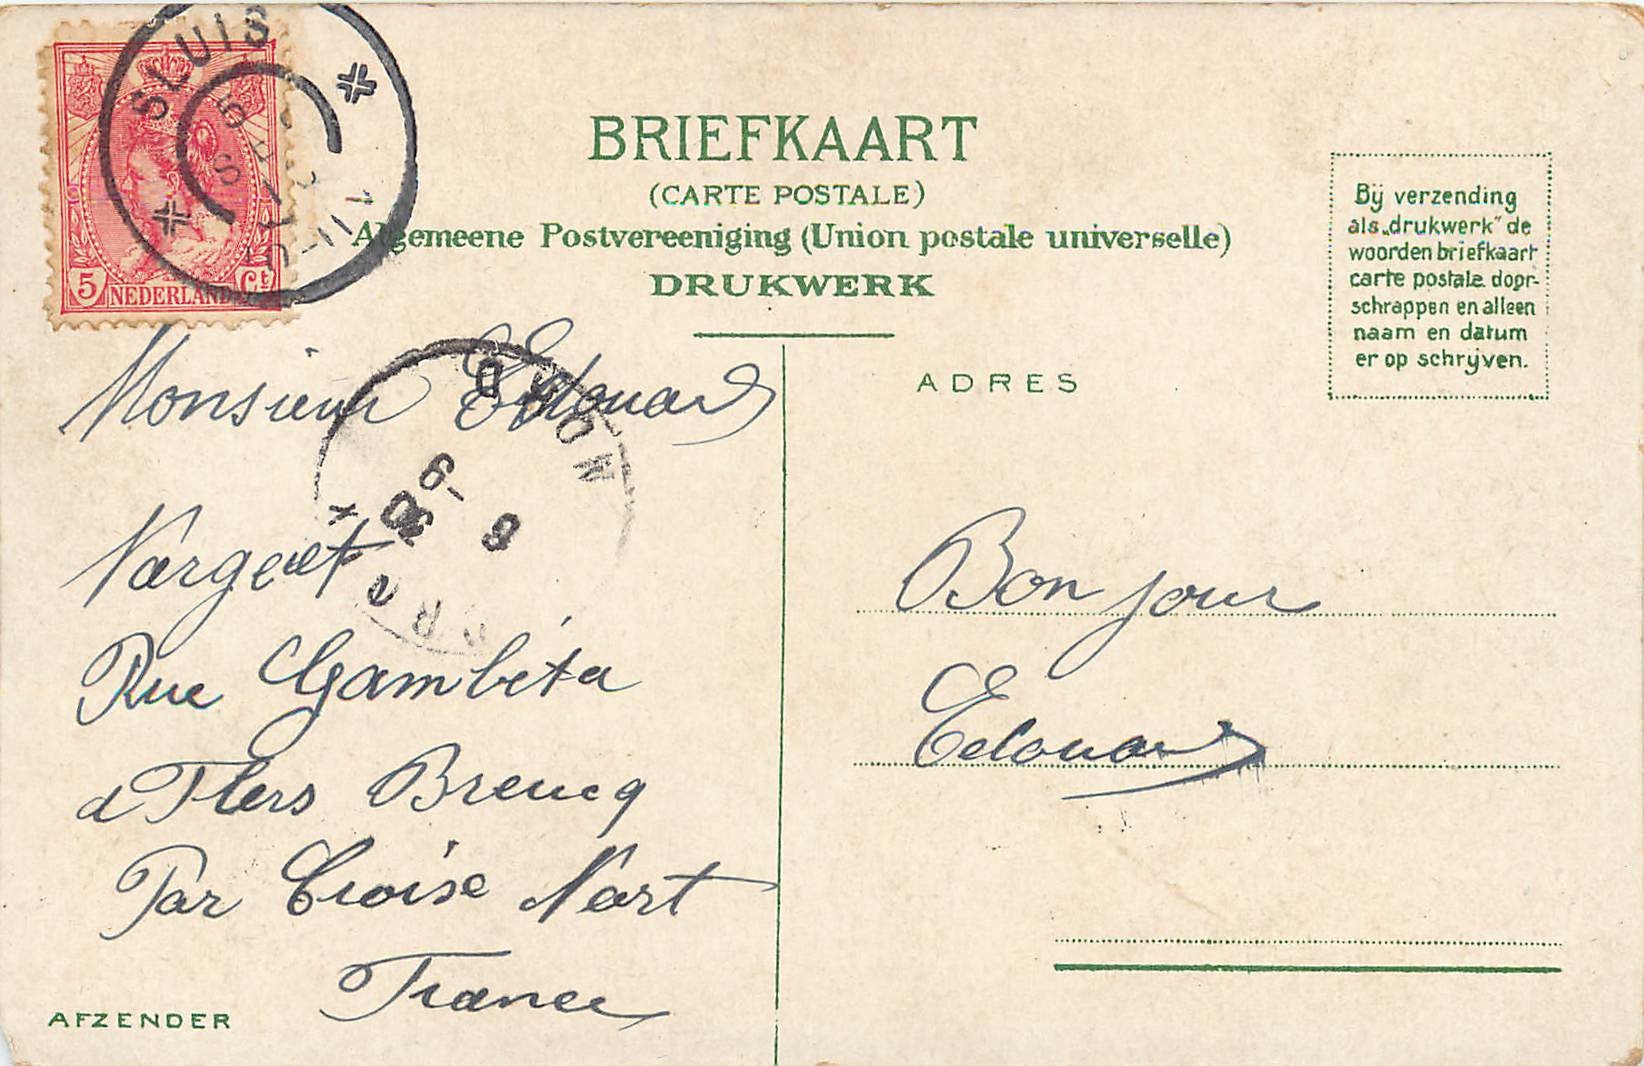 SLUIS
5
NEDERLAND
Ct
BRIEFKAART
(CARTE POSTALE)
Algemeene Postvereeniging (Union postale universelle)
DRUKWERK
Bij verzending
als „drukwerk” de
woorden briefkaart
carte postale door-
schrappen en alleen
naam en datum
er op schrijven.
ADRES
Monsieur Edouard
Rue Gambéta
d Flers Breucq
Par Croise Nort
France
Bonjour
Edouard
AFZENDER